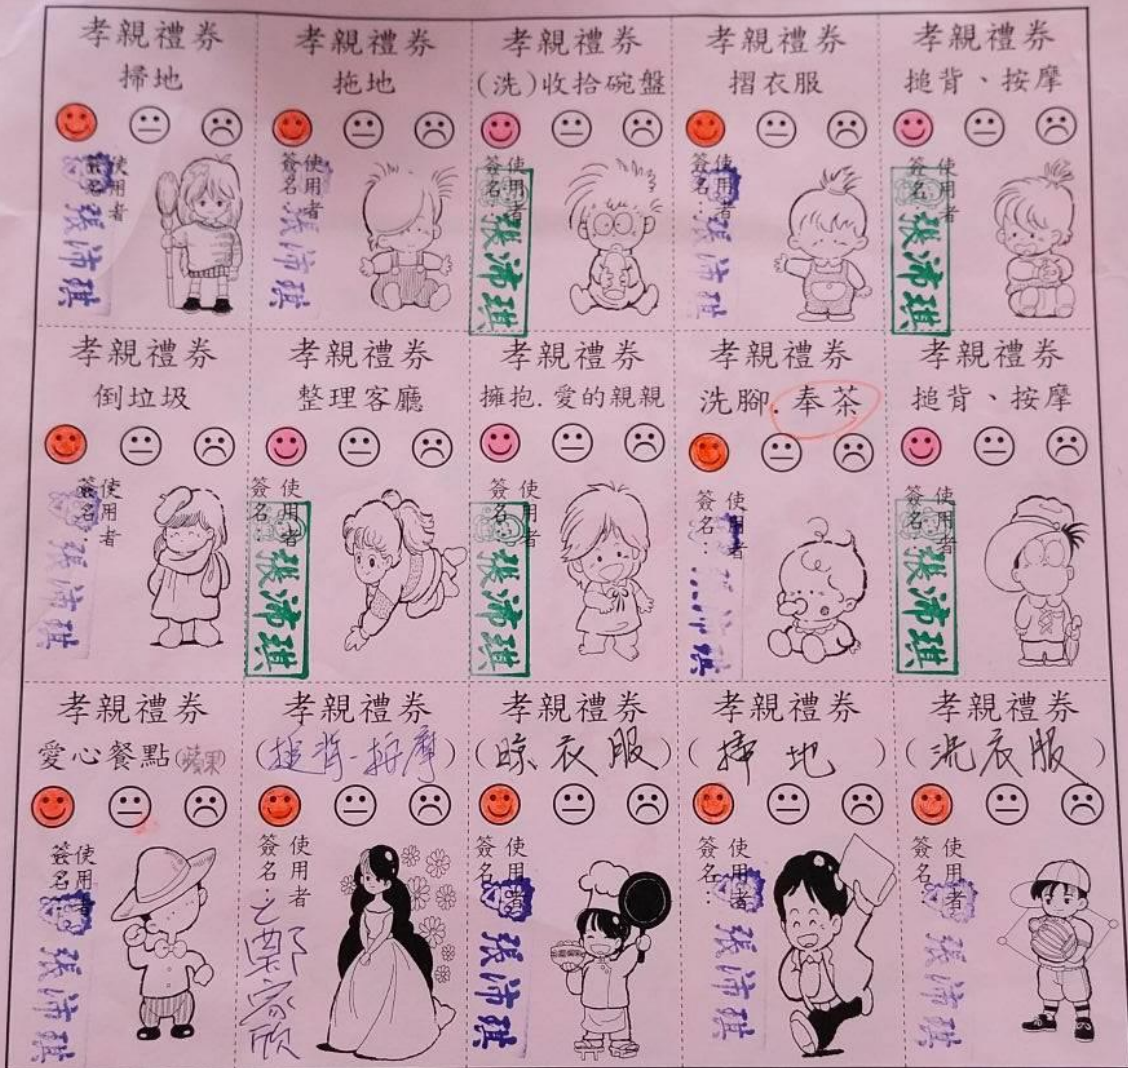 孝親禮券
掃地
使用者
簽名
張沛琪
孝親禮券
拖地
使用者
簽名
張沛琪
孝親禮券
(洗)收拾碗盤
使用者
簽名
張沛琪
孝親禮券
摺衣服
使用者
簽名
張沛琪
孝親禮券
搥背、按摩
使用者
簽名
張沛琪
孝親禮券
倒垃圾
使用者
簽名:
張沛琪
孝親禮券
整理客廳
使用者
簽名
張沛琪
孝親禮券
擁抱.愛的親親
使用者
簽名
張沛琪
孝親禮券
洗腳.奉茶
使用者
簽名:
琪
孝親禮券
搥背、按摩
使用者
簽名
張沛琪
孝親禮券
愛心餐點(蘋果)
使用者
簽名
張沛琪
孝親禮券
(搥背-按摩)
使用者
簽名:
鄭家欣
孝親禮券
(晾衣服)
使用者
簽名
張沛琪
孝親禮券
(掃地)
使用者
簽名
張沛琪
孝親禮券
(洗衣服)
使用者
簽名:
張沛琪